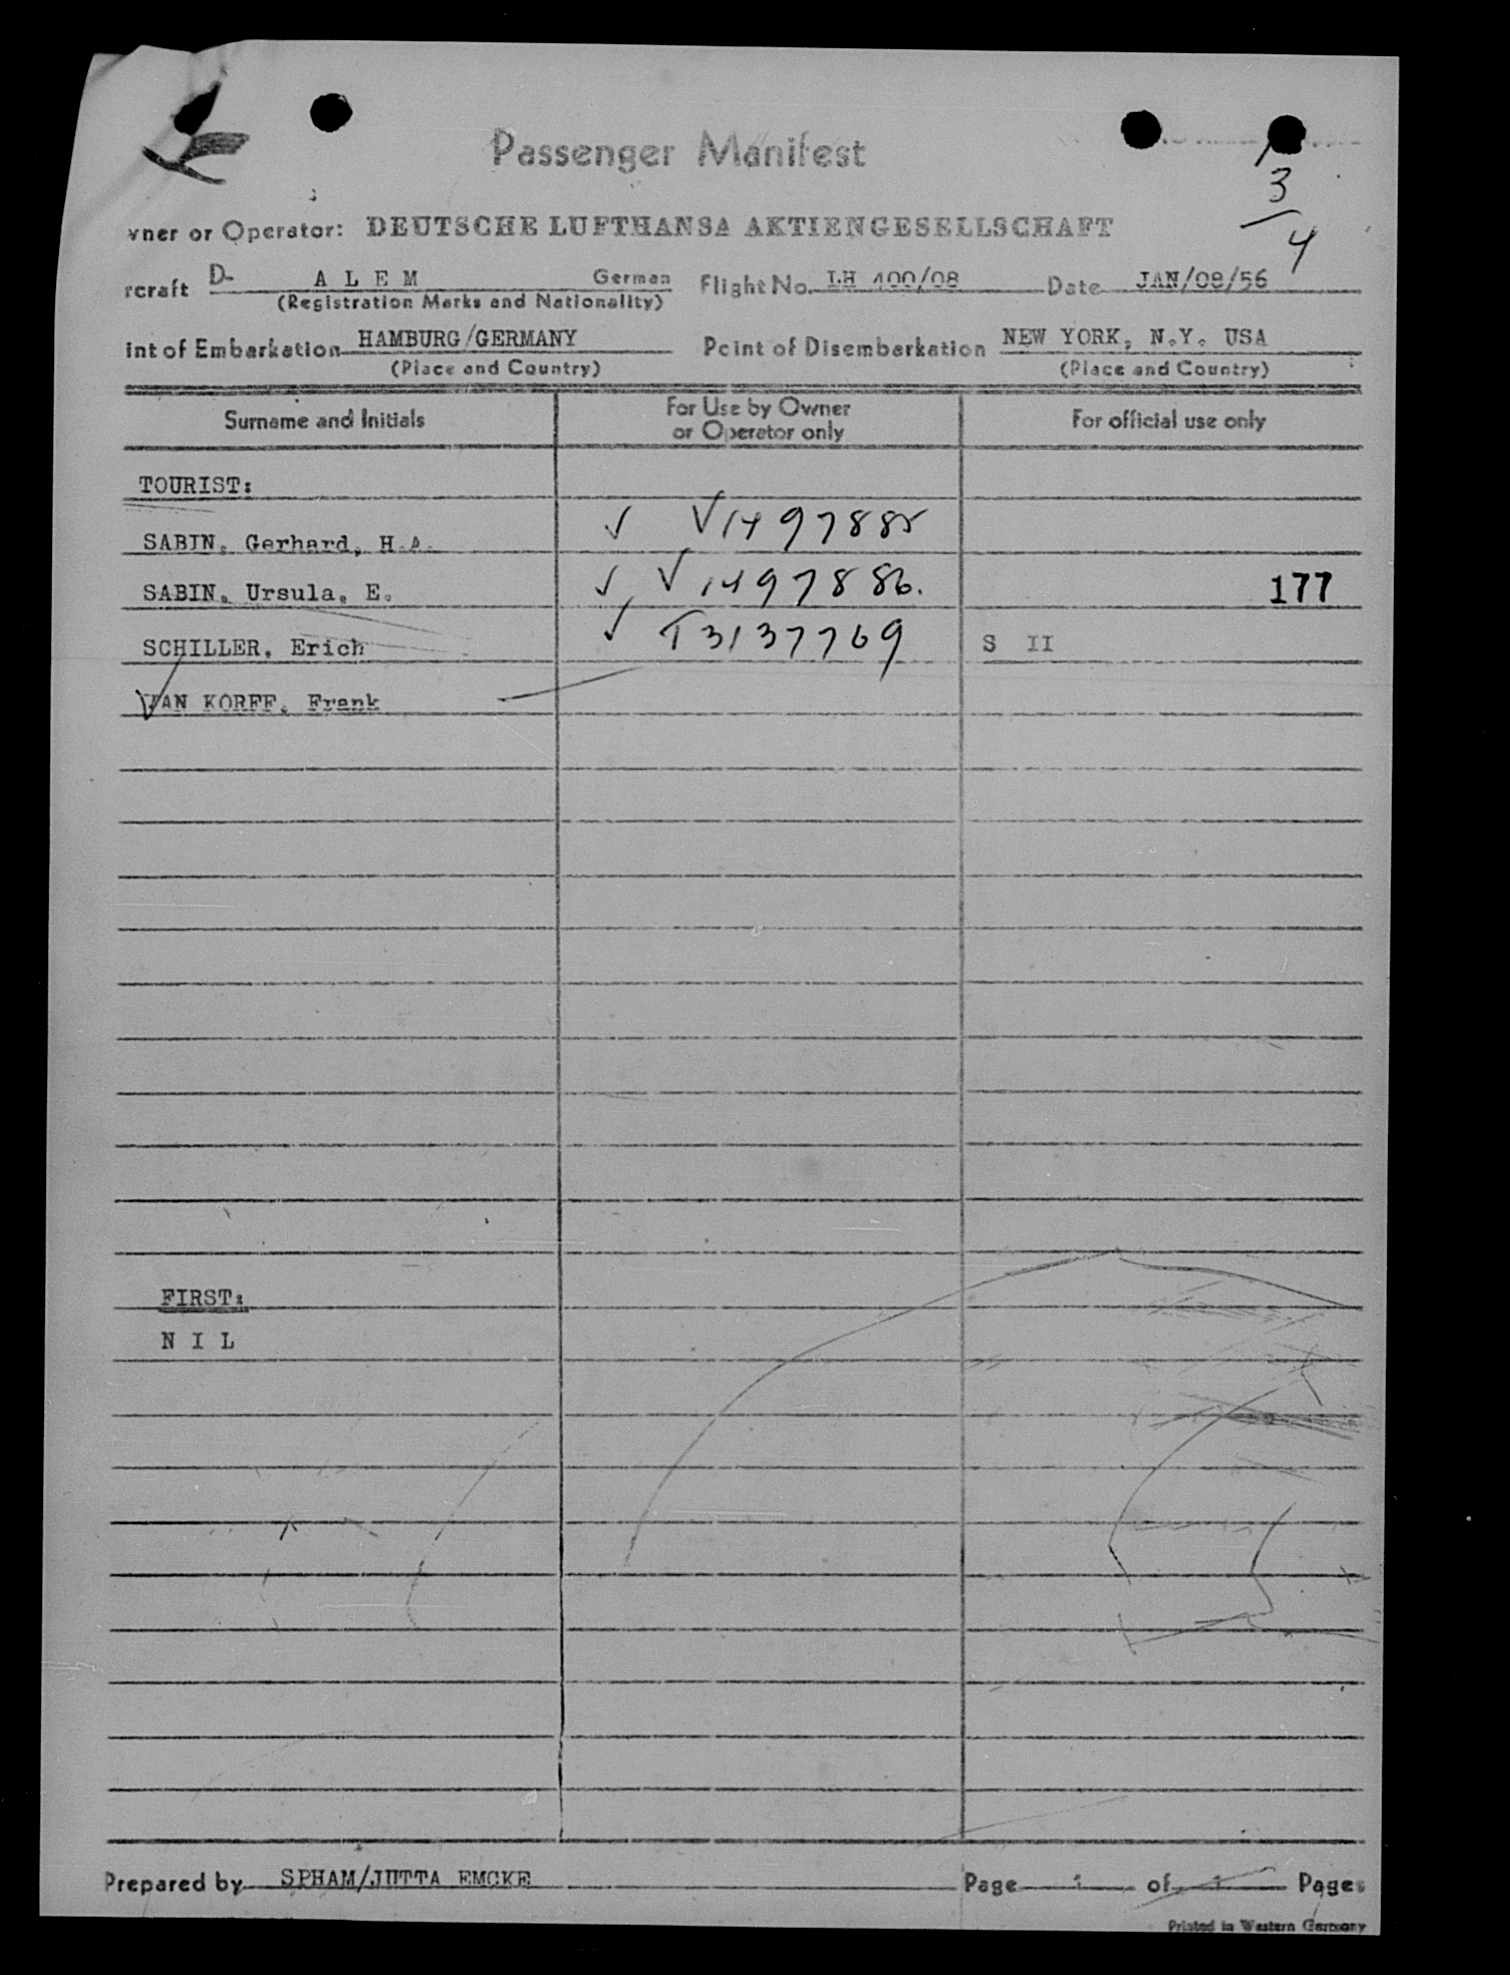 Passenger Manifest
3
4
wner or Operator: DEUTSCHE LUFTHANSA AKTIENGESELLSCHAFT
rcraft D- A L E M German Flight No. LH 400/08 Date JAN/08/56
(Registration Marks and Nationality)
int of Embarkation HAMBURG/GERMANY Point of Disembarkation NEW YORK, N.Y. USA
(Place and Country) (Place and Country)
Surname and Initials For Use by Owner or Operator only For official use only
TOURIST:
SABIN, Gerhard, H.A. ✓ V1497885
SABIN, Ursula, E. ✓ V1497886. 177
SCHILLER, Erich ✓ T3137769 S II
VAN KORFF, Frank
FIRST:
N I L
Prepared by SPHAM/JUTTA EMCKE Page 1 of 1 Pages
Printed in Western Germany